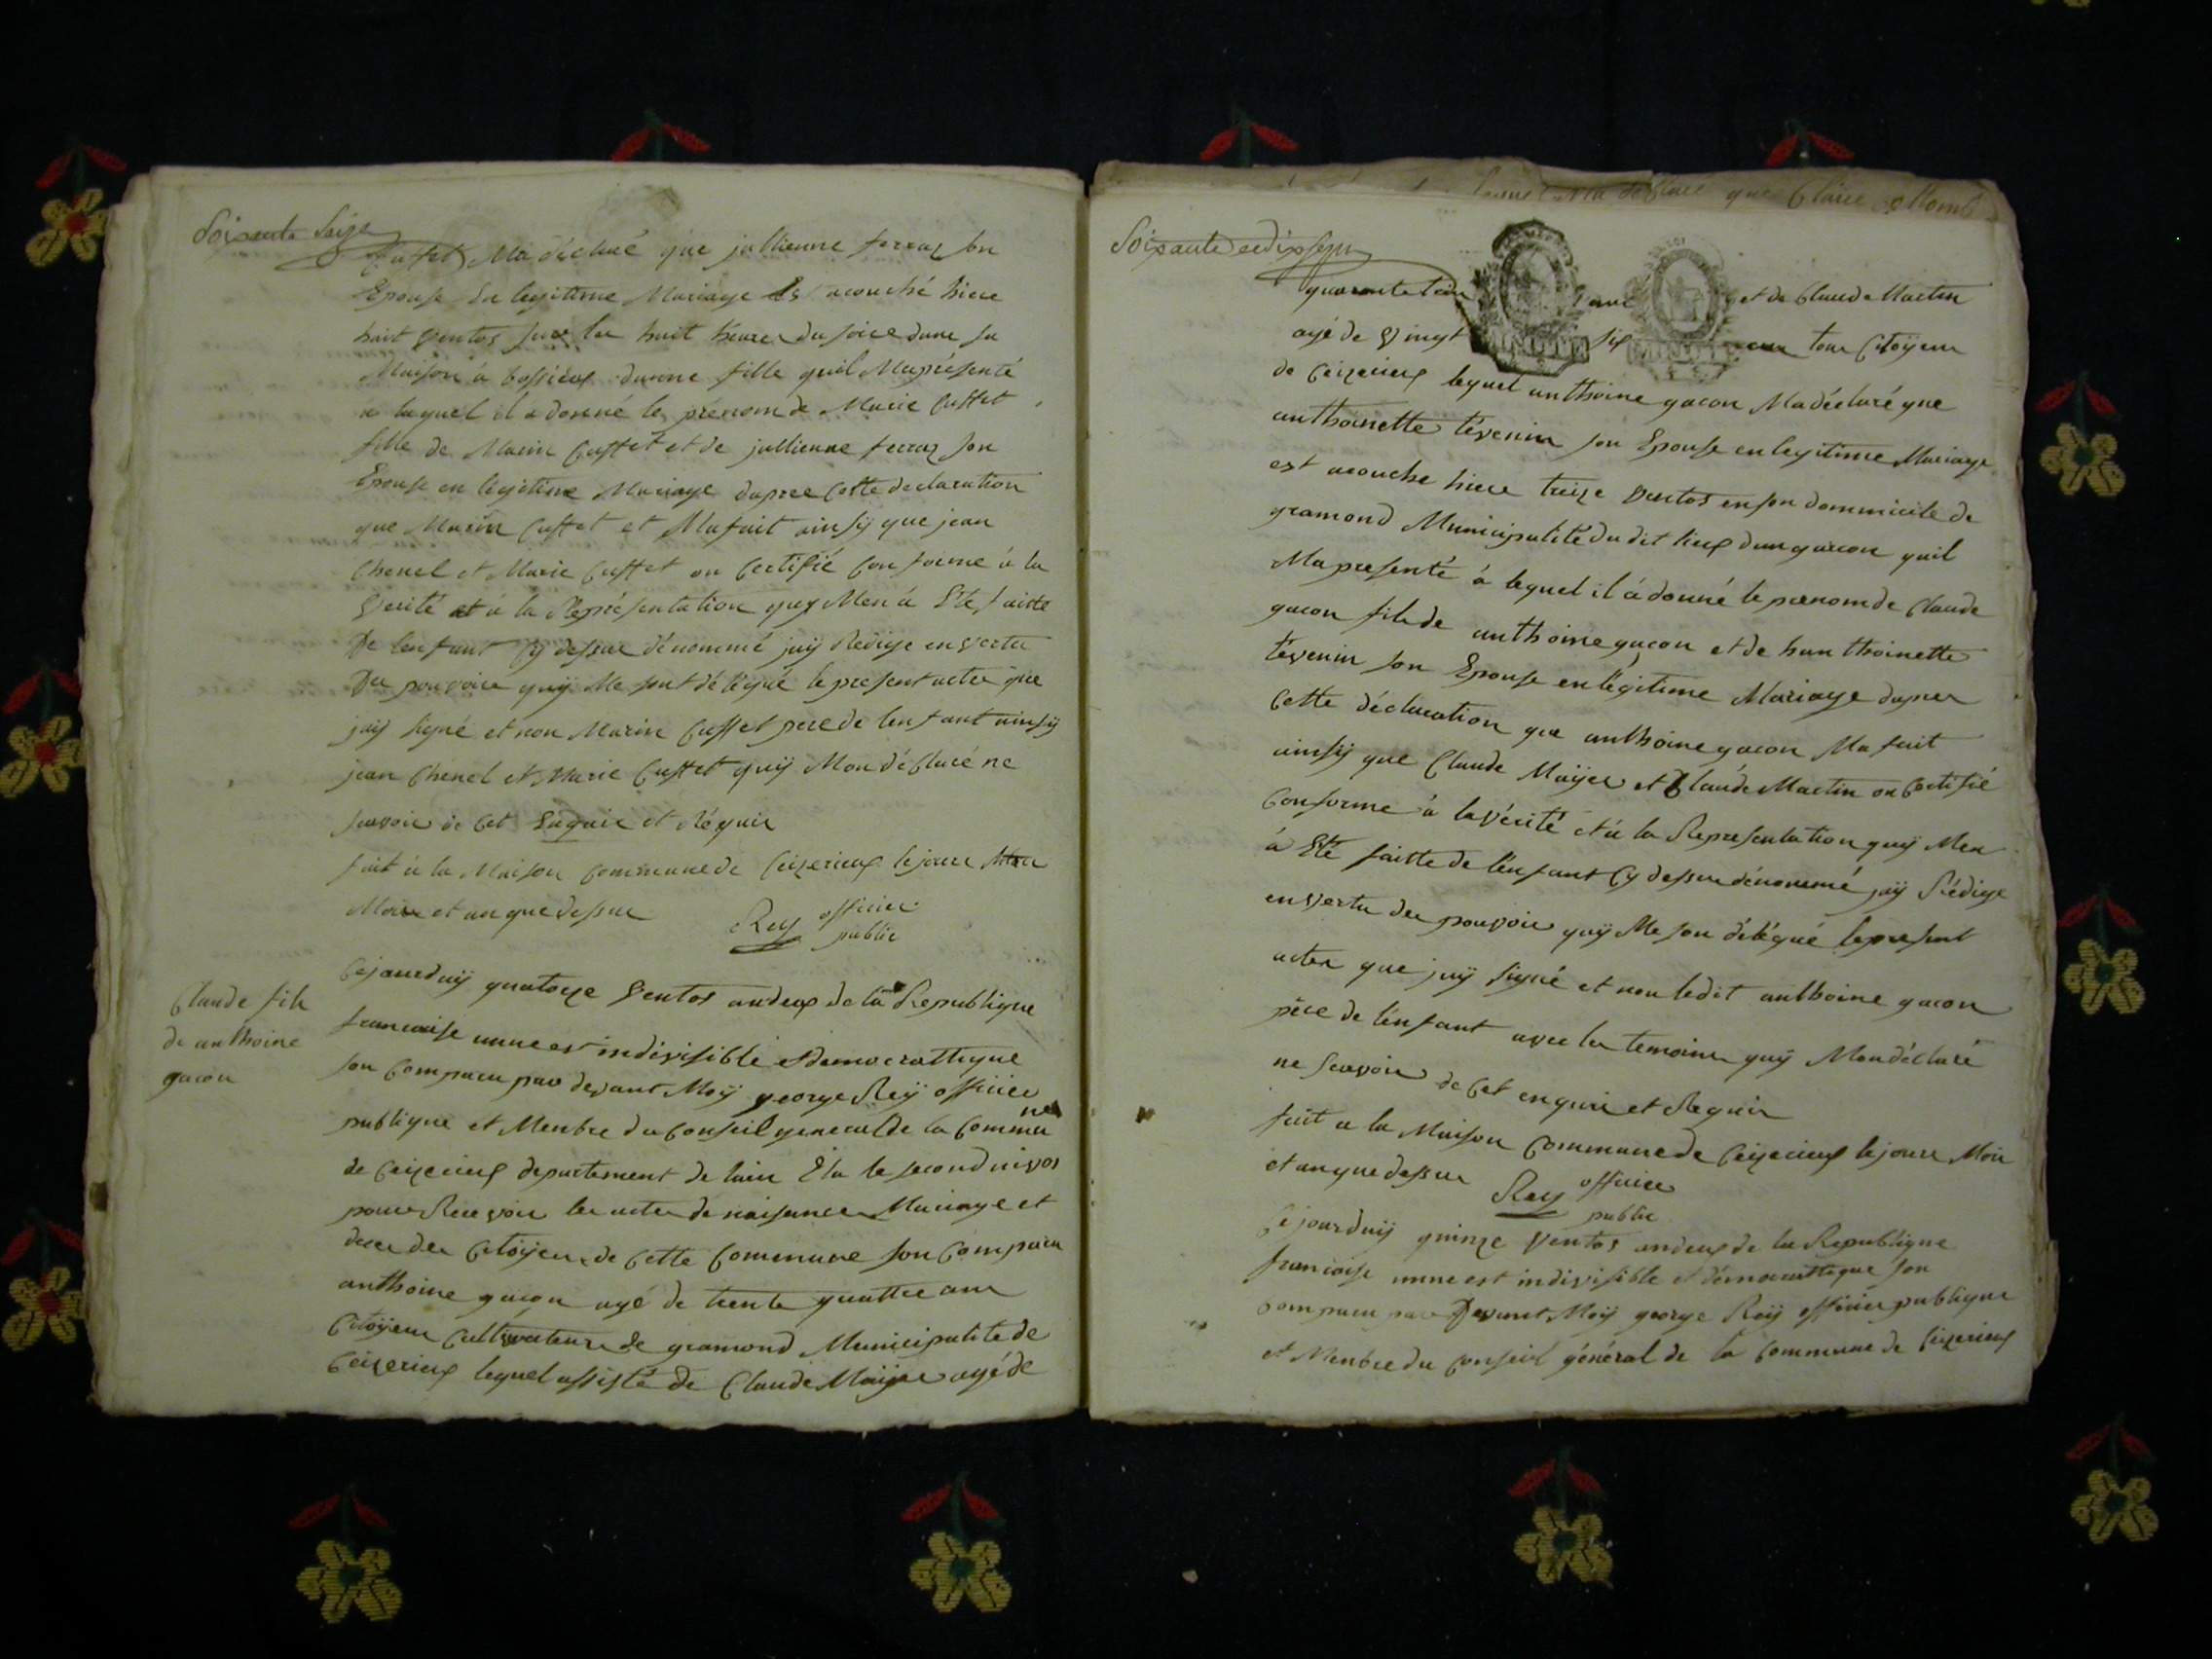 Soixante Seize
Cuffet Ma déclaré que jullienne ferraz son
Epouse En legitime Mariage Es acouché hiere
huit Ventos sur les huit heures du soire dans sa
Maison à bossieux dunne fille quil Mapresenté
a laquel il a donné le prénom de Marie Cuffet
fille de Marin Cuffet et de jullienne ferraz son
Epouse en legitime Mariage dapres Cette declaration
que Marin Cuffet et Mafait ainsÿ que jean
Chenel et Marie Cuffet on Certifié Conforme à la
Verité et à la Représentation quy Men à Eté faitte
De lenfant Cy dessus dénommé jaÿ Redige en vertu
Des pouvoirs quÿ Me sont délégué le present actes que
jaÿ signé et non Marin Cuffet pere de lenfant ainsÿ
jean Chenel et Marie Cuffet quÿ Mon déClaré ne
savoir de Cet Enquis et Réquis
fait à la Maison Commune de Ceizerieux le jour
Mois et an que dessus
Rey officier
public
Claude fils
de anthoine
gacon
Cejourduÿ quatorze Ventos andeux de la Republique
francaise unne et indivisible et democrattique
son Comparu par devant Moÿ george Reÿ officier
publique et Menbre du Conseil general de la Commu
nes
de Ceizerieux departement de lain Elu le second nivos
pour Recevoir les actes de naisances Mariage et
deces des Citoÿens de Cette Commune son Comparu
anthoine gacon agé de trente quattre ans
Citoÿens Cultivateurs de gramond Municipalité de
Ceizerieux lequel assisté de Claude Maÿer agé de
Claire Collomb
Soixante et dix sept
quarante ans et de Claude Martin
agé de Vingt six ans tous Citoÿens
de Ceizerieux lequel anthoine gacon Ma déclaré que
anthoinette tévenin son Epouse en legitime Mariage
est acouche hiere treize Ventos en son dommicile de
gramond Municipalité du dit lieux dun garcon quil
Mapresenté à lequel il à donné le prenom de Claude
gacon fils de anthoine gacon et de hanthoinette
tévenin son Epouse en légitime Mariage dapres
Cette déclaration que anthoine gacon Mafait
ainsÿ que Claude Maÿer et Claude Martin on Certifié
Conforme à la vérité et à la Representation quÿ Men
à Eté faitte de lenfant Cy dessus dénommé jaÿ Rédige
en vertu des pouvoir quÿ Me son délégué le present
actes que jaÿ signé et non ledit anthoine gacon
père de lenfant avec les temoins quÿ Mon déclaré
ne scavoir de Cet enquis et Requis
fait a la Maison Commune de Ceizerieux le jour Mois
et an que dessus
Rey officier
public
Cejourduÿ quinze Ventos andeux de la Republique
francaise unne est indivisible et démocrattique son
Comparu par Devant Moÿ george Reÿ officier publique
et Menbre du Conseil général de la Commune de Ceizerieux